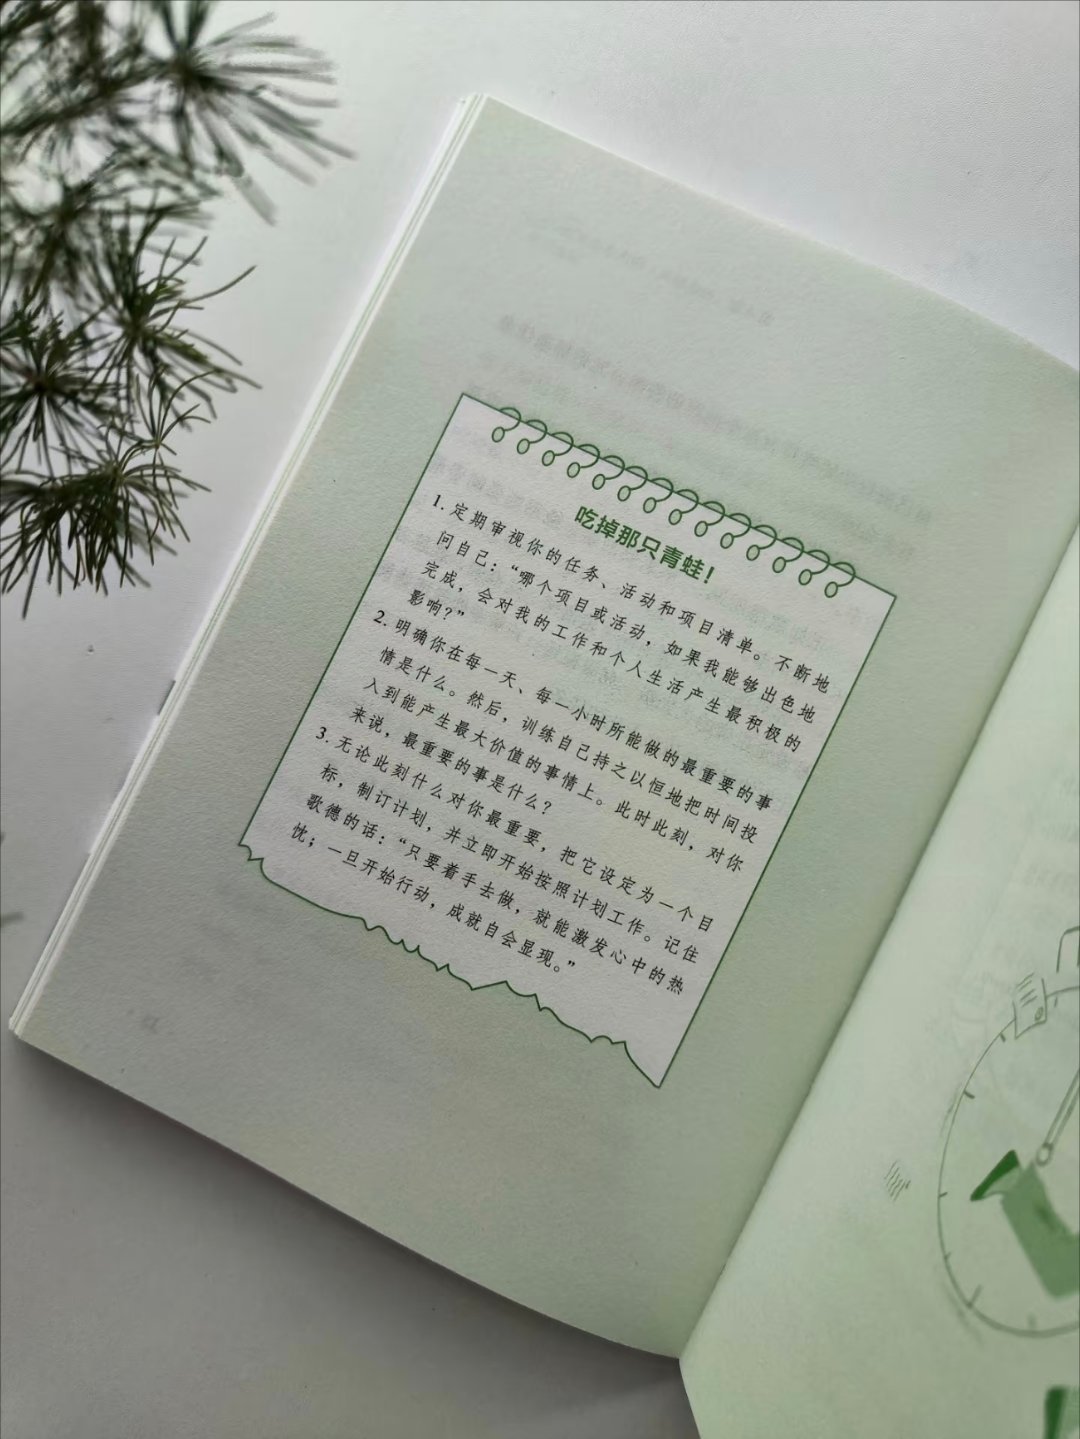 吃掉那只青蛙！
1. 定期审视你的任务、活动和项目清单。不断地
问自己：“哪个项目或活动，如果我能够出色地
完成，会对我的工作和个人生活产生最积极的
影响？”
2. 明确你在每一天、每一小时所能做的最重要的事
情是什么。然后，训练自己持之以恒地把时间投
入到能产生最大价值的事情上。此时此刻，对你
来说，最重要的事是什么？
3. 无论此刻什么对你最重要，把它设定为一个目
标，制订计划，并立即开始按照计划工作。记住
歌德的话：“只要着手去做，就能激发心中的热
忱；一旦开始行动，成就自会显现。”